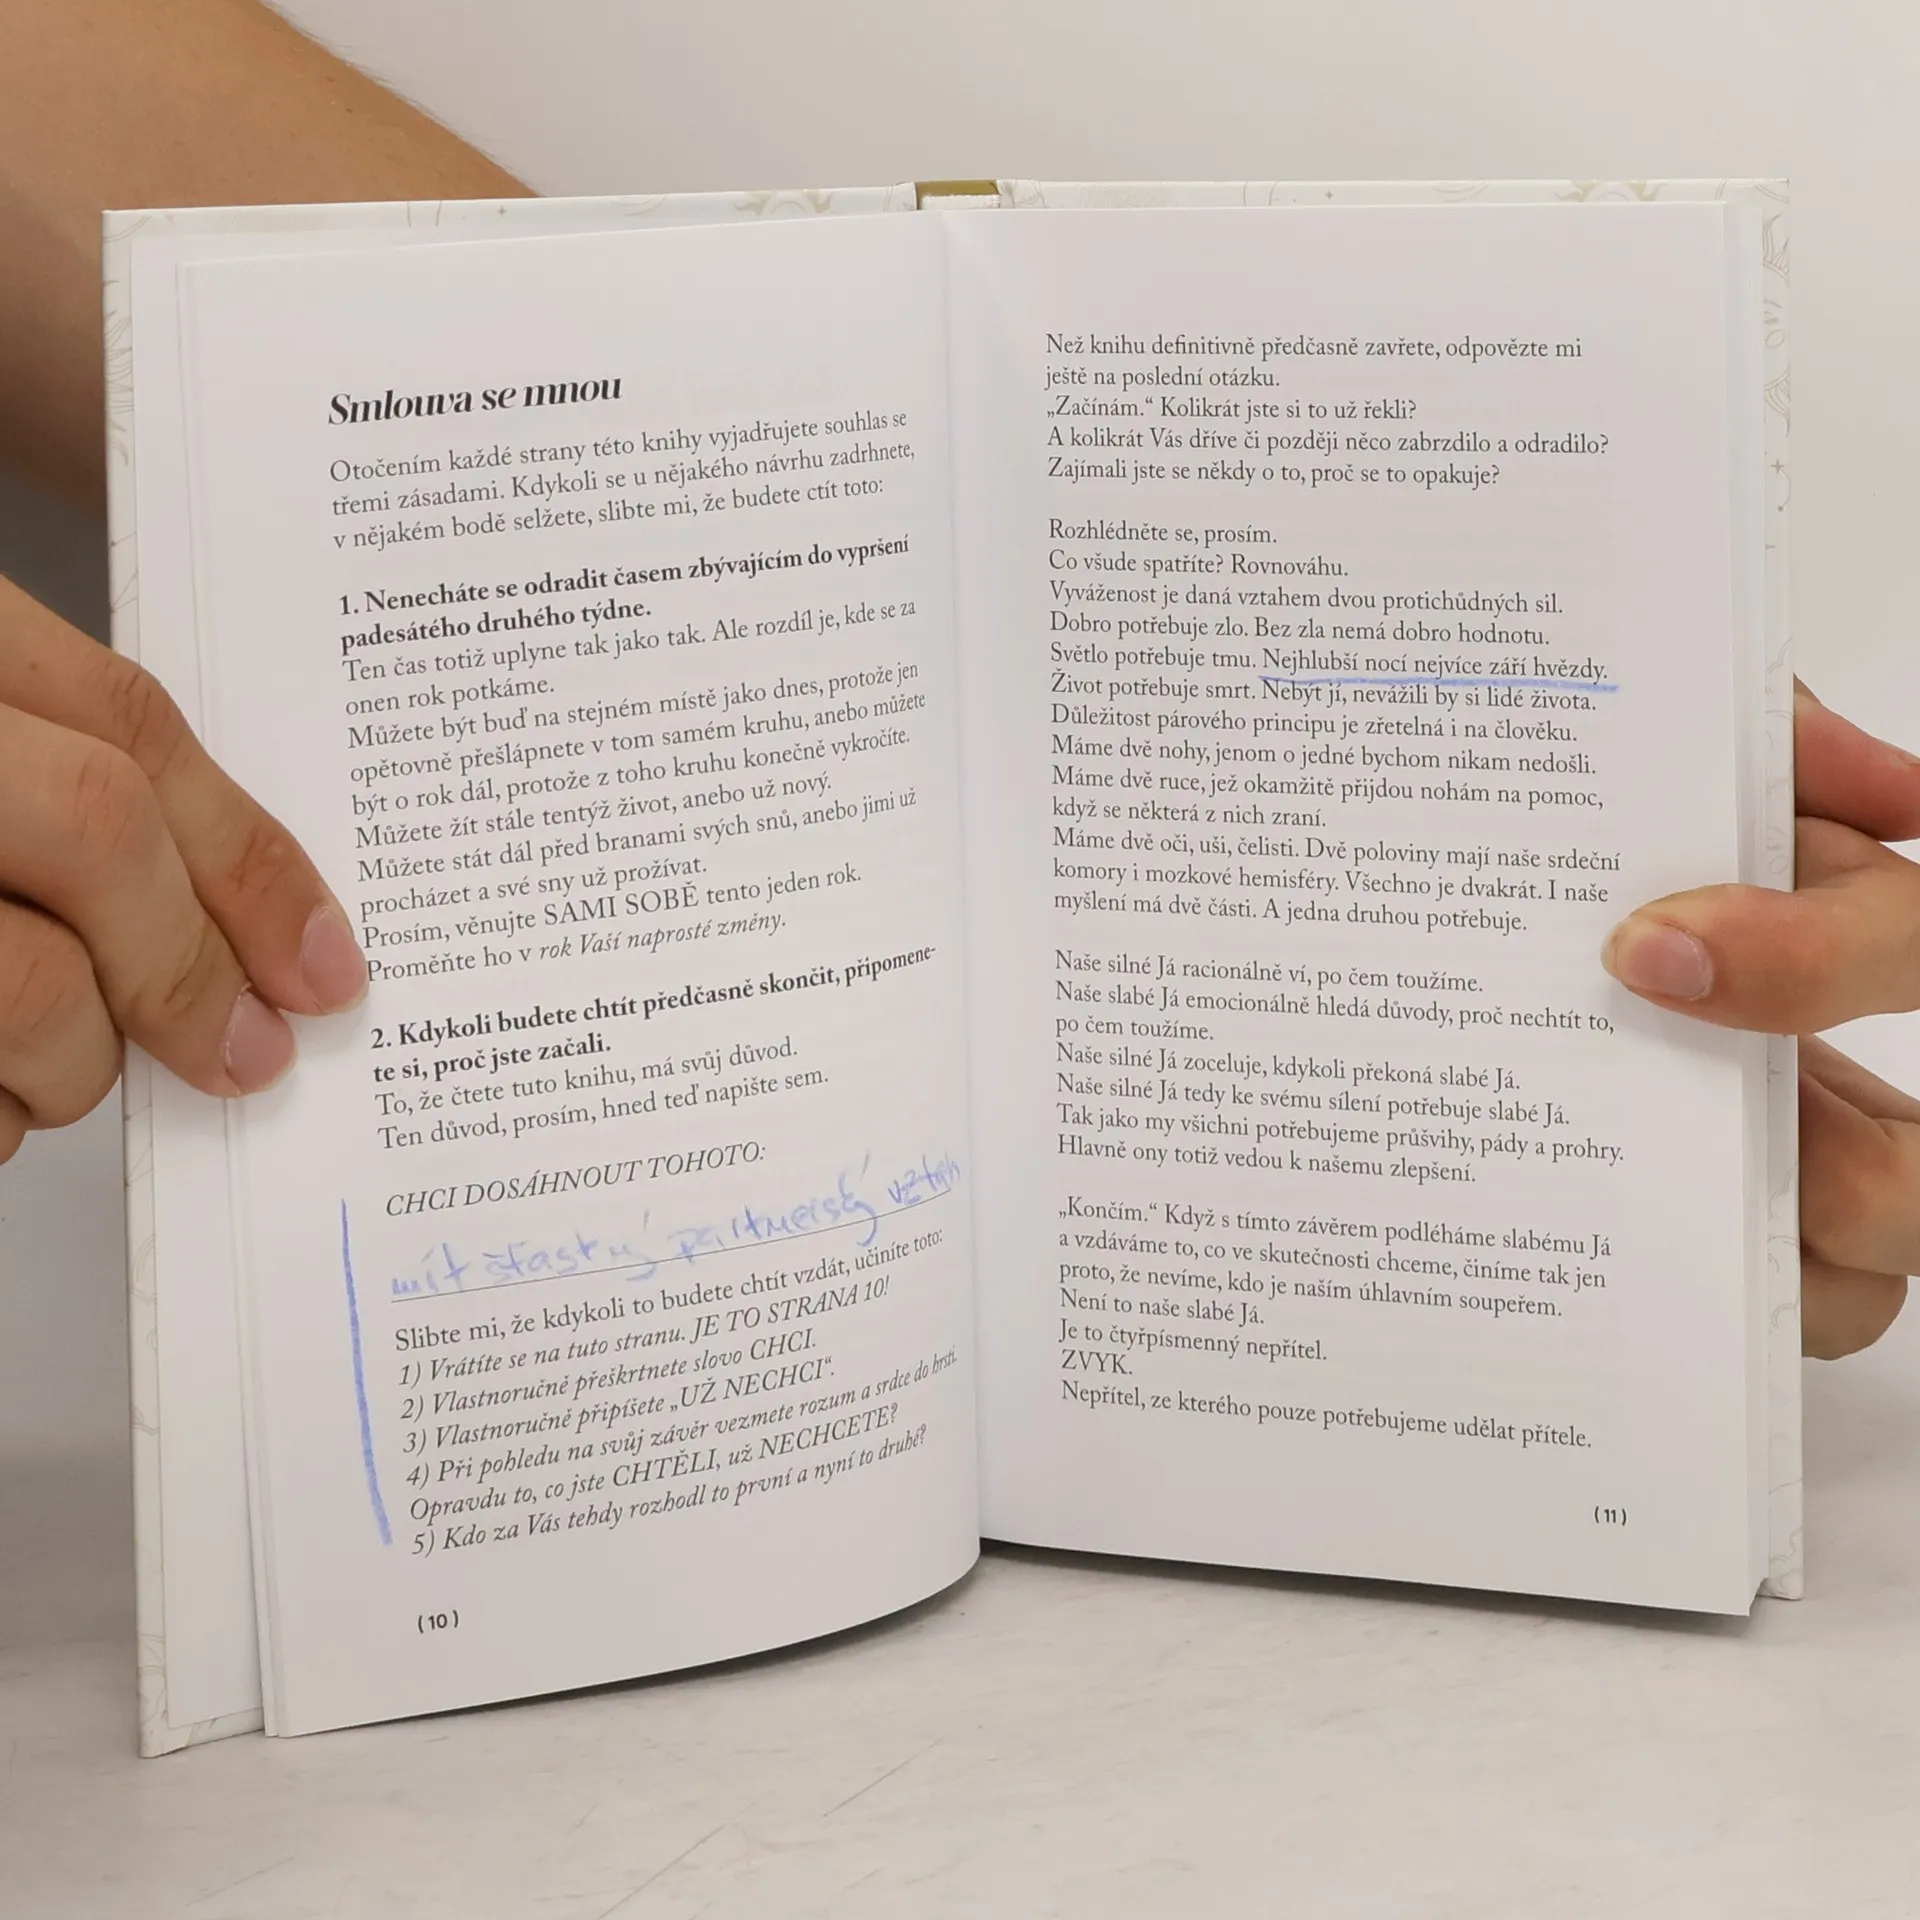 Smlouva se mnou
Otočením každé strany této knihy vyjadřujete souhlas se
třemi zásadami. Kdykoli se u nějakého návrhu zadrhnete,
v nějakém bodě selžete, slibte mi, že budete ctít toto:
1. Nenecháte se odradit časem zbývajícím do vypršení
padesátého druhého týdne.
Ten čas totiž uplyne tak jako tak. Ale rozdíl je, kde se za
onen rok potkáme.
Můžete být buď na stejném místě jako dnes, protože jen
opětovně přešlápnete v tom samém kruhu, anebo můžete
být o rok dál, protože z toho kruhu konečně vykročíte.
Můžete žít stále tentýž život, anebo už nový.
Můžete stát dál před branami svých snů, anebo jimi už
procházet a své sny už prožívat.
Prosím, věnujte SAMI SOBĚ tento jeden rok.
Proměňte ho v rok Vaší naprosté změny.
2. Kdykoli budete chtít předčasně skončit, připomene-
te si, proč jste začali.
To, že čtete tuto knihu, má svůj důvod.
Ten důvod, prosím, hned teď napište sem.
CHCI DOSÁHNOUT TOHOTO:
mít šťastný partnerský vztah
Slibte mi, že kdykoli to budete chtít vzdát, učiníte toto:
1) Vrátíte se na tuto stranu. JE TO STRANA 10!
2) Vlastnoručně přeškrtnete slovo CHCI.
3) Vlastnoručně připíšete „UŽ NECHCI“.
4) Při pohledu na svůj závěr vezmete rozum a srdce do hrsti.
Opravdu to, co jste CHTĚLI, už NECHCETE?
5) Kdo za Vás tehdy rozhodl to první a nyní to druhé?
(10)
Než knihu definitivně předčasně zavřete, odpovězte mi
ještě na poslední otázku.
„Začínám.“ Kolikrát jste si to už řekli?
A kolikrát Vás dříve či později něco zabrzdilo a odradilo?
Zajímali jste se někdy o to, proč se to opakuje?
Rozhlédněte se, prosím.
Co všude spatříte? Rovnováhu.
Vyváženost je daná vztahem dvou protichůdných sil.
Dobro potřebuje zlo. Bez zla nemá dobro hodnotu.
Světlo potřebuje tmu. Nejhlubší nocí nejvíce září hvězdy.
Život potřebuje smrt. Nebýt jí, nevážili by si lidé života.
Důležitost párového principu je zřetelná i na člověku.
Máme dvě nohy, jenom o jedné bychom nikam nedošli.
Máme dvě ruce, jež okamžitě přijdou nohám na pomoc,
když se některá z nich zraní.
Máme dvě oči, uši, čelisti. Dvě poloviny mají naše srdeční
komory i mozkové hemisféry. Všechno je dvakrát. I naše
myšlení má dvě části. A jedna druhou potřebuje.
Naše silné Já racionálně ví, po čem toužíme.
Naše slabé Já emocionálně hledá důvody, proč nechtít to,
po čem toužíme.
Naše silné Já zoceluje, kdykoli překoná slabé Já.
Naše silné Já tedy ke svému sílení potřebuje slabé Já.
Tak jako my všichni potřebujeme průšvihy, pády a prohry.
Hlavně ony totiž vedou k našemu zlepšení.
„Končím.“ Když s tímto závěrem podléháme slabému Já
a vzdáváme to, co ve skutečnosti chceme, činíme tak jen
proto, že nevíme, kdo je naším úhlavním soupeřem.
Není to naše slabé Já.
Je to čtyřpísmenný nepřítel.
ZVYK.
Nepřítel, ze kterého pouze potřebujeme udělat přítele.
(11)